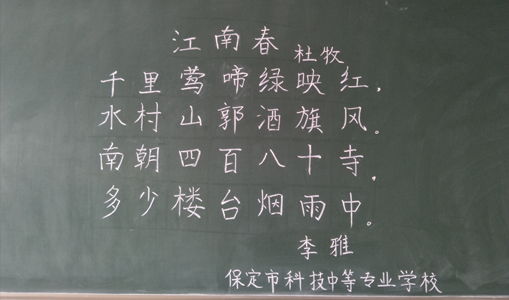 江南春
杜牧
千里莺啼绿映红,
水村山郭酒旗风。
南朝四百八十寺.
多少楼台烟雨中。
李雅
保定市科技中等专业学校